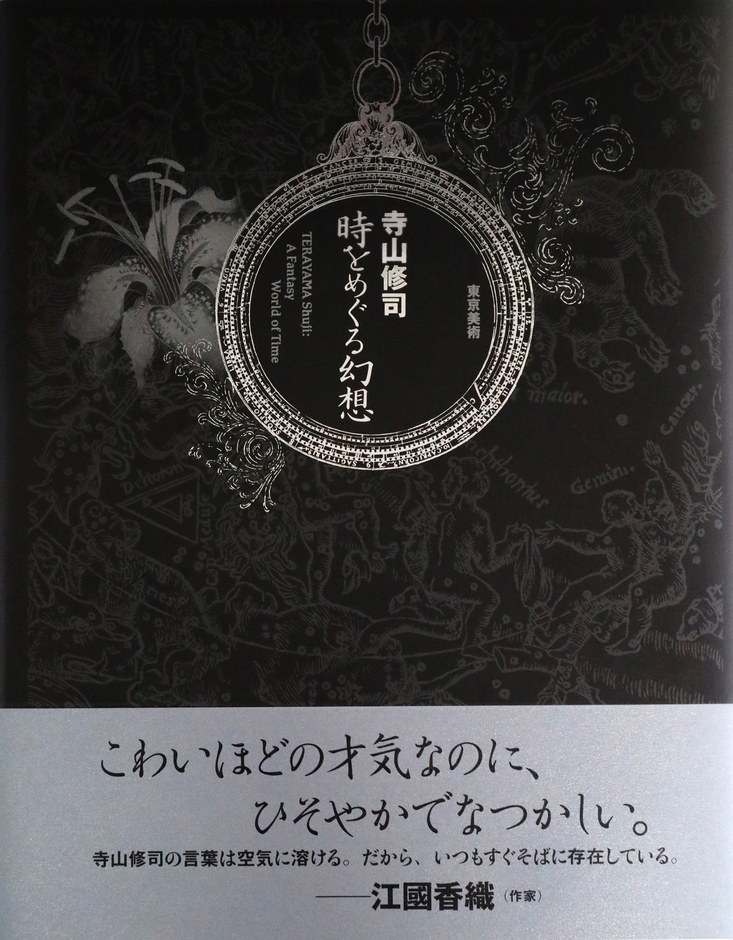 寺山修司
時をめぐる幻想
TERAYAMA Shuji:
A Fantasy
World of Time
東京美術
maior.
cancer.
Gemini.
こわいほどの才気なのに、
ひそやかでなつかしい。
寺山修司の言葉は空気に溶ける。だから、いつもすぐそばに存在している。
――江國香織(作家)